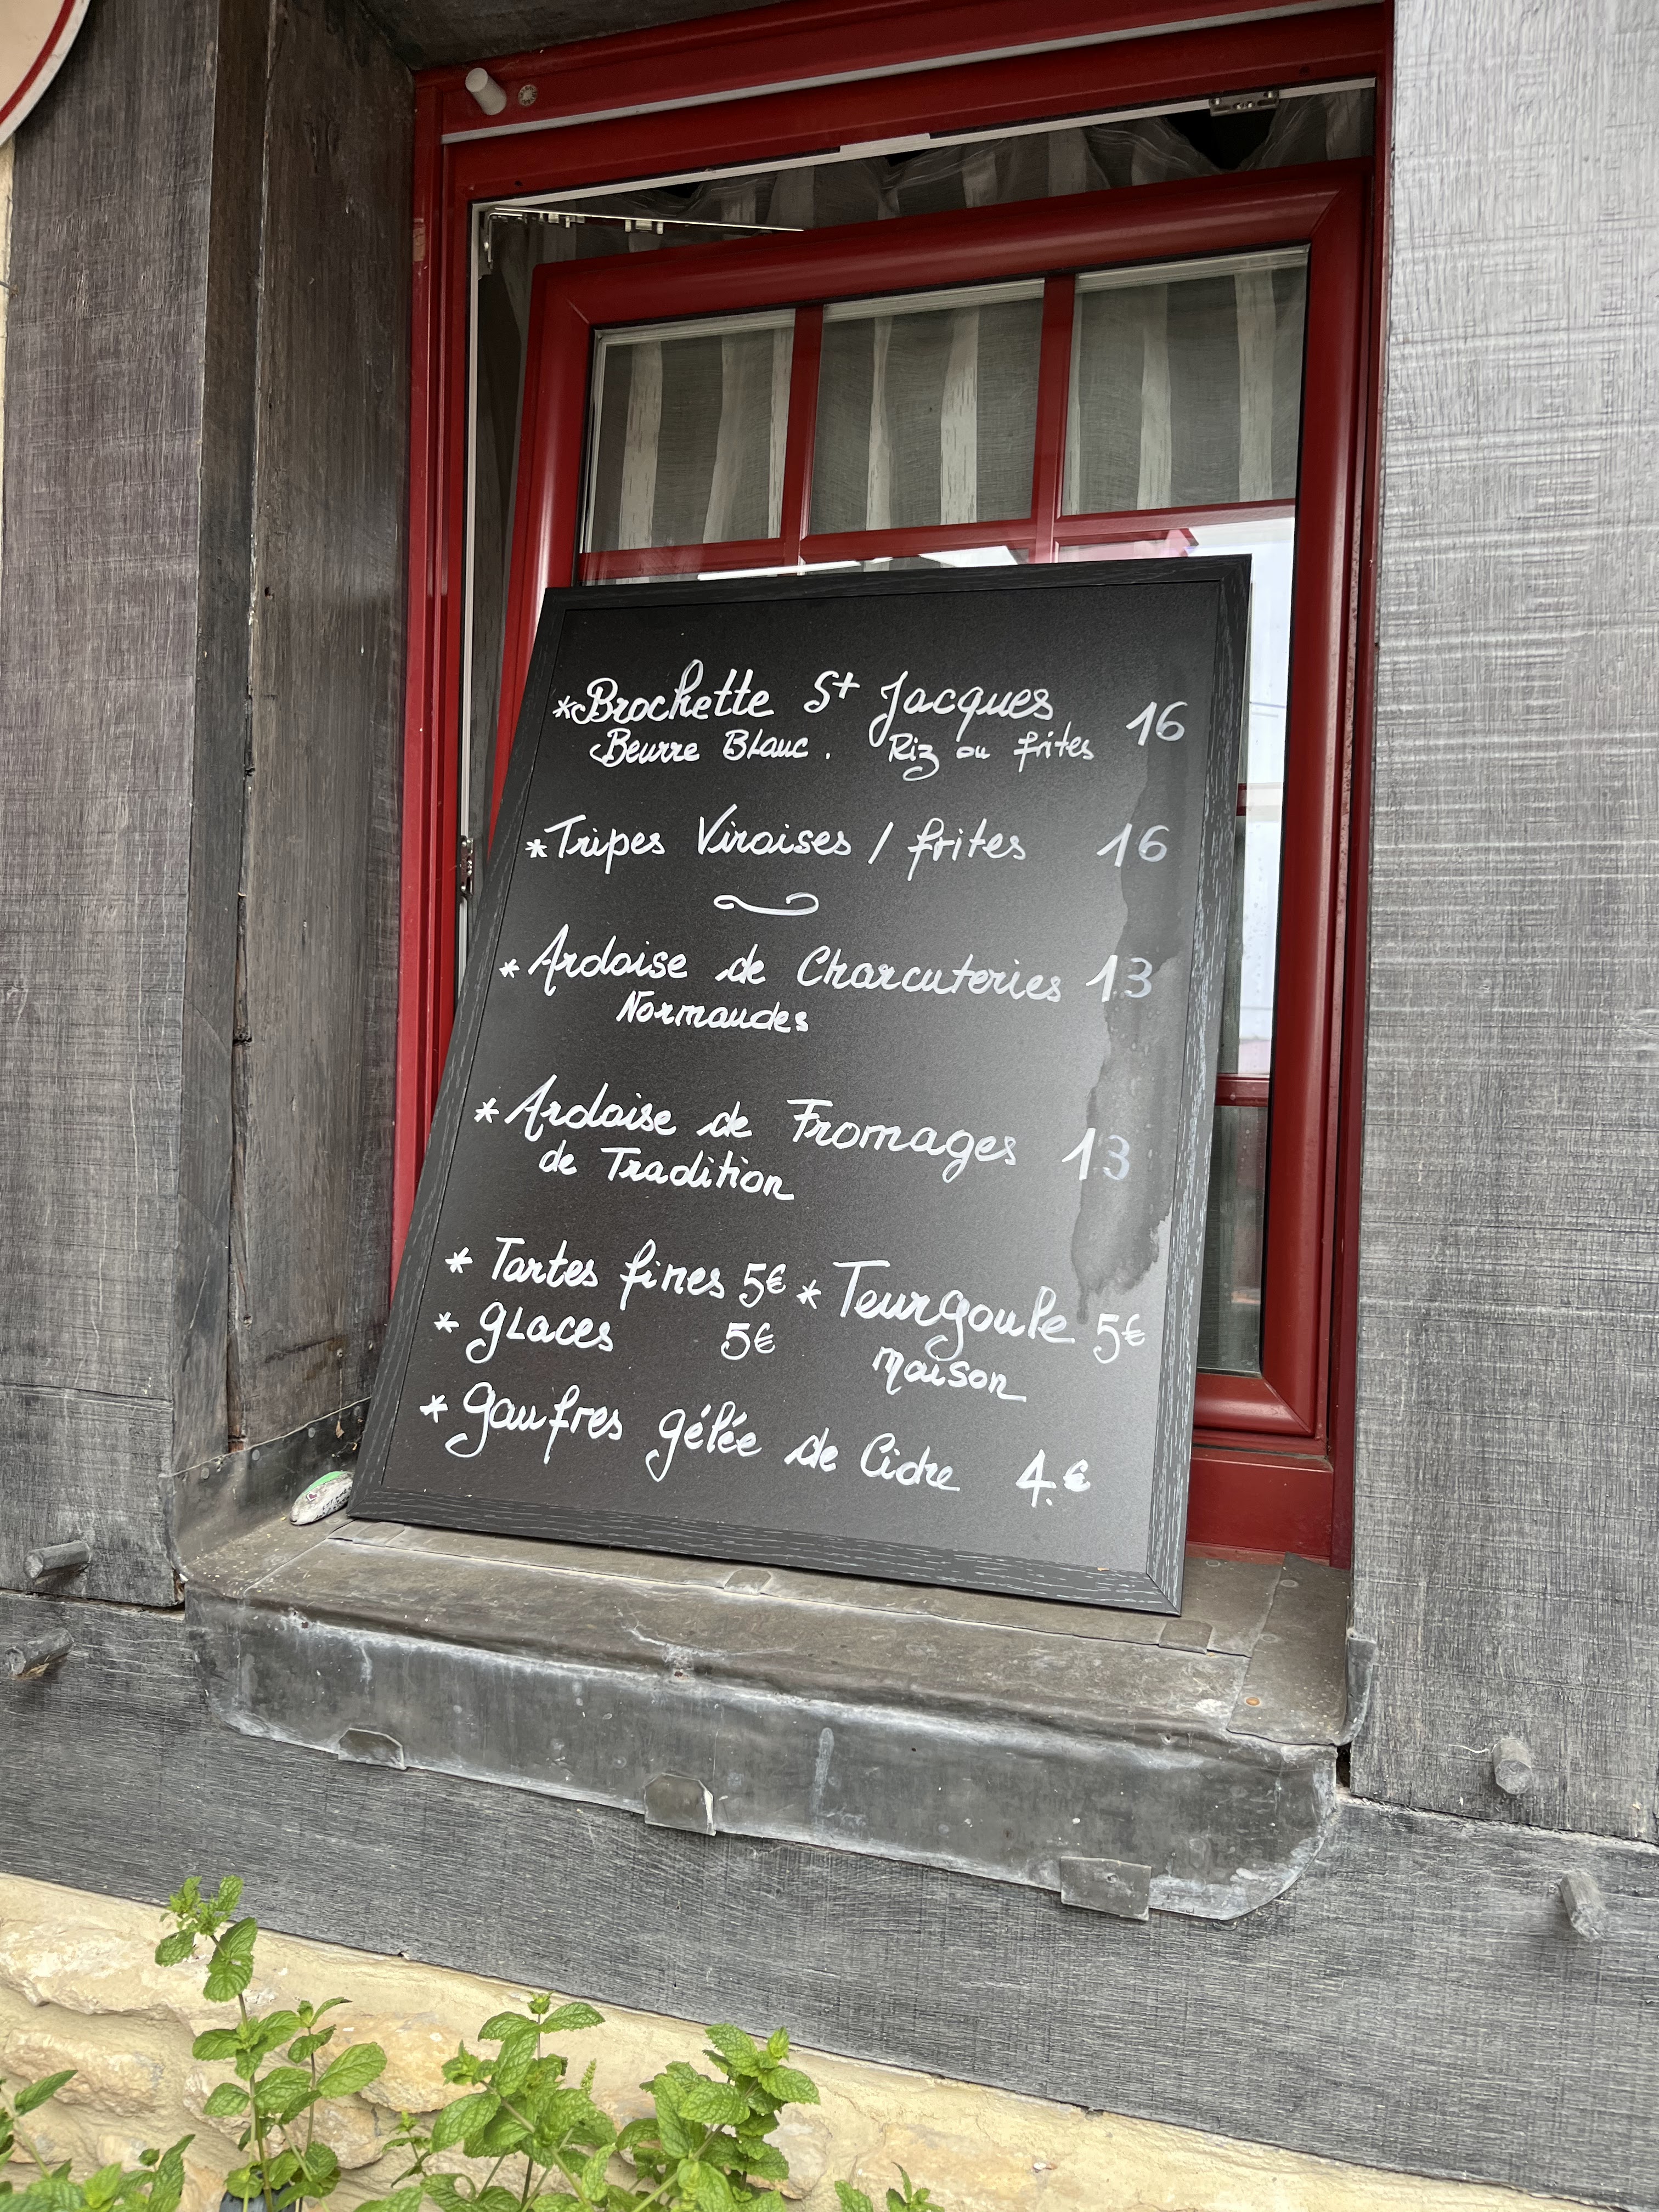 *Brochette St Jacques 16
Beurre Blanc. Riz ou frites
*Tripes Viroises / frites 16
*Ardoise de Charcuteries 13
Normandes
*Ardoise de Fromages 13
de Tradition
* Tartes fines 5€ * Teurgoule 5€
* glaces 5€ maison
* gaufres gélée de Cidre 4.€